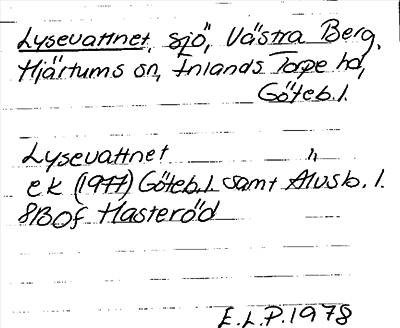 Lysevattnet, sjö, Västra Berg,
Hjärtums sn, Inlands Torpe hd,
Göteb. l.
Lysevattnet "
ek (1977) Göteb. l. samt Älvsb. l.
8B0f Hasteröd
E.L.P. 1978